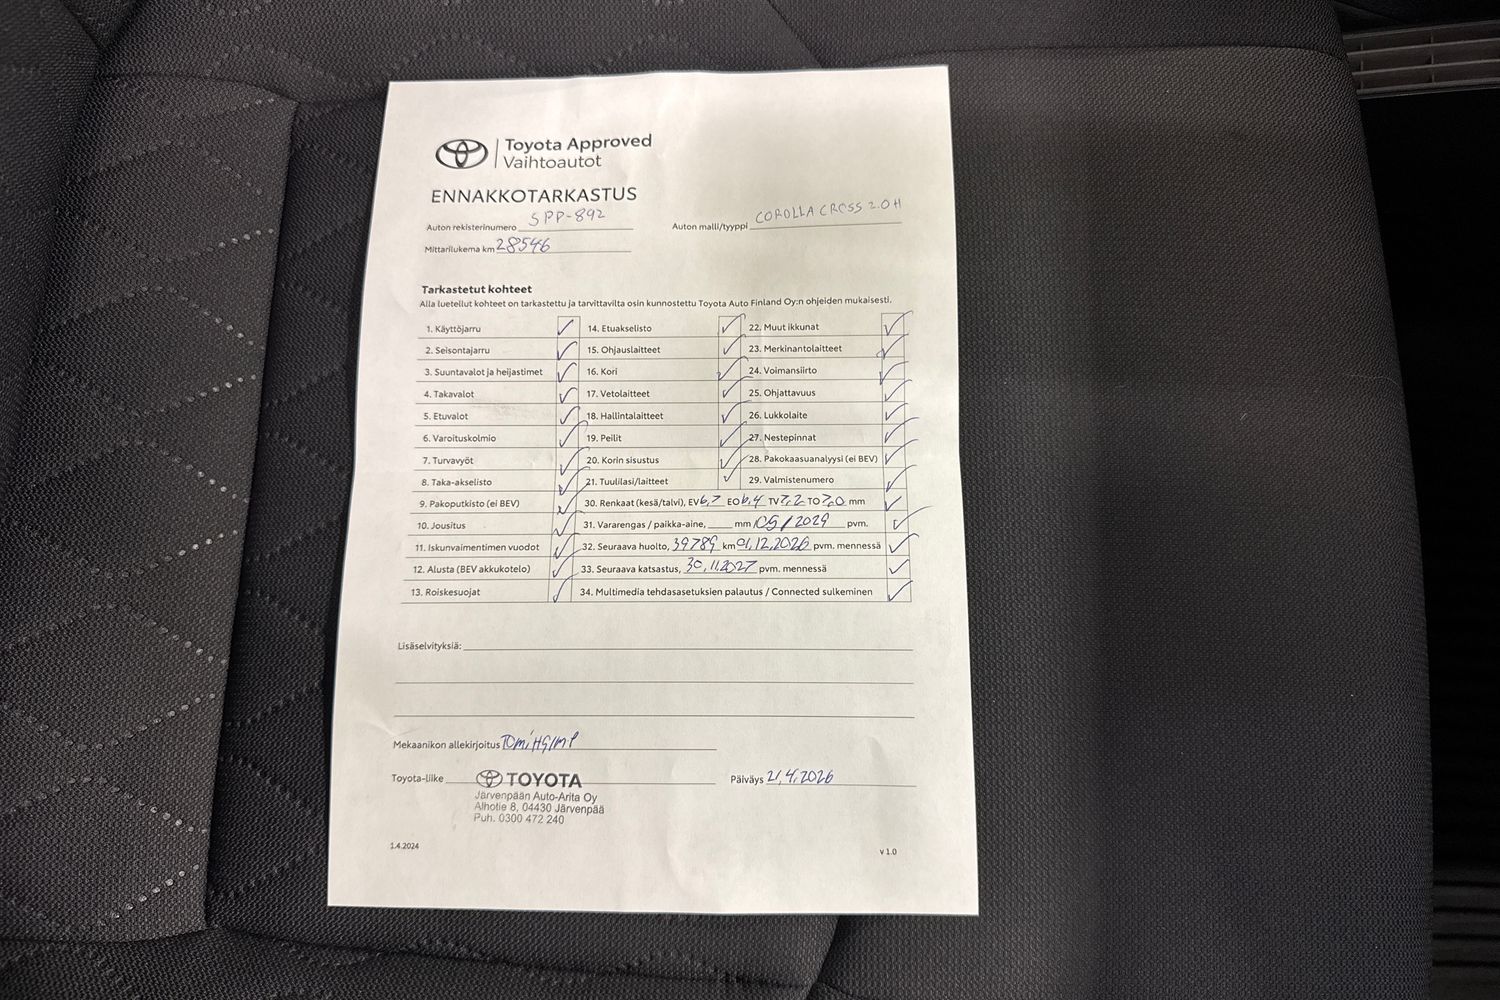 Toyota Approved
Vaihtoautot
ENNAKKOTARKASTUS
Auton rekisterinumero SPP-892 Auton malli/tyyppi COROLLA CROSS 2.0H
Mittarilukema km 28546
Tarkastetut kohteet
Alla luetellut kohteet on tarkastettu ja tarvittavilta osin kunnostettu Toyota Auto Finland Oy:n ohjeiden mukaisesti.
1. Käyttöjarru 14. Etuakselisto 22. Muut ikkunat
2. Seisontajarru 15. Ohjauslaitteet 23. Merkinantolaitteet
3. Suuntavalot ja heijastimet 16. Kori 24. Voimansiirto
4. Takavalot 17. Vetolaitteet 25. Ohjattavuus
5. Etuvalot 18. Hallintalaitteet 26. Lukkolaite
6. Varoituskolmio 19. Peilit 27. Nestepinnat
7. Turvavyöt 20. Korin sisustus 28. Pakokaasuanalyysi (ei BEV)
8. Taka-akselisto 21. Tuulilasi/laitteet 29. Valmistenumero
9. Pakoputkisto (ei BEV) 30. Renkaat (kesä/talvi), EV 6,7 EO 6,4 TV 7,2 TO 7,0 mm
10. Jousitus 31. Vararengas / paikka-aine, mm / 05/2029 pvm.
11. Iskunvaimentimen vuodot 32. Seuraava huolto, 39789 km 01.12.2026 pvm. mennessä
12. Alusta (BEV akkukotelo) 33. Seuraava katsastus, 30.11.2027 pvm. mennessä
13. Roiskesuojat 34. Multimedia tehdasasetuksien palautus / Connected sulkeminen
Lisäselvityksiä:
Mekaanikon allekirjoitus
Toyota-liike TOYOTA Päiväys 21.4.2026
Järvenpään Auto-Arita Oy
Alhotie 8, 04430 Järvenpää
Puh. 0300 472 240
1.4.2024 v 1.0